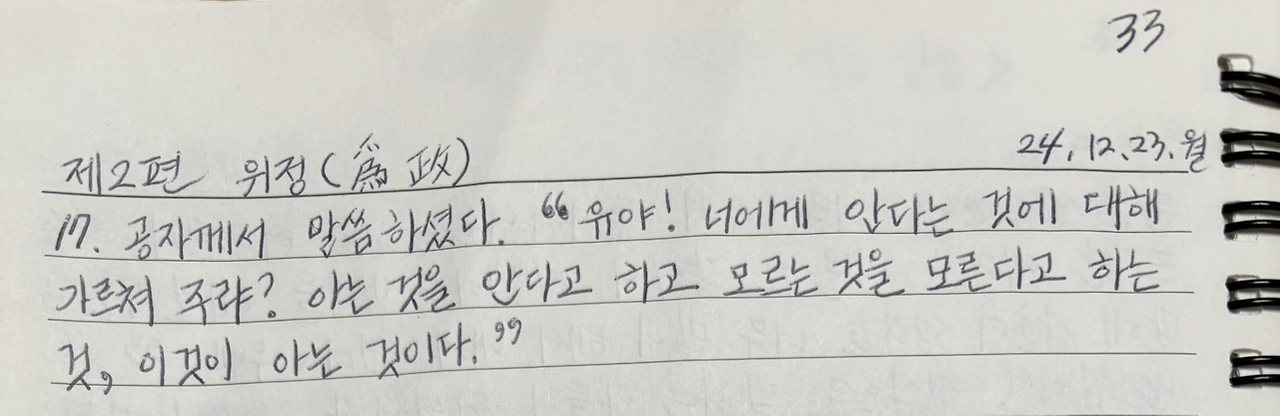 33
24.12.23.월
제2편 위정(爲政)
17. 공자께서 말씀하셨다. “유야! 너에게 안다는 것에 대해
가르쳐 주랴? 아는 것을 안다고 하고 모르는 것을 모른다고 하는
것, 이것이 아는 것이다.”